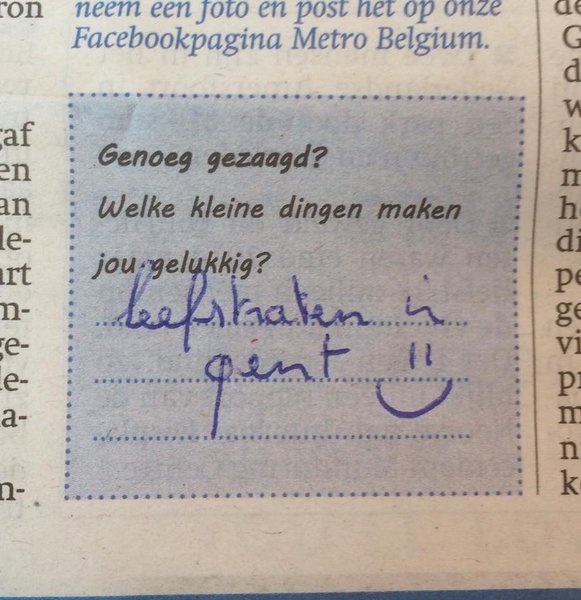 ron
neem een foto en post het op onze
Facebookpagina Metro Belgium.
Genoeg gezaagd?
Welke kleine dingen maken
jou gelukkig?
leefstraten in
gent
af
en
an
le-
art
m-
ge-
de-
a-
n-
de
G
d
w
k
m
he
di
pe
ge
vi
pr
m
n
ke